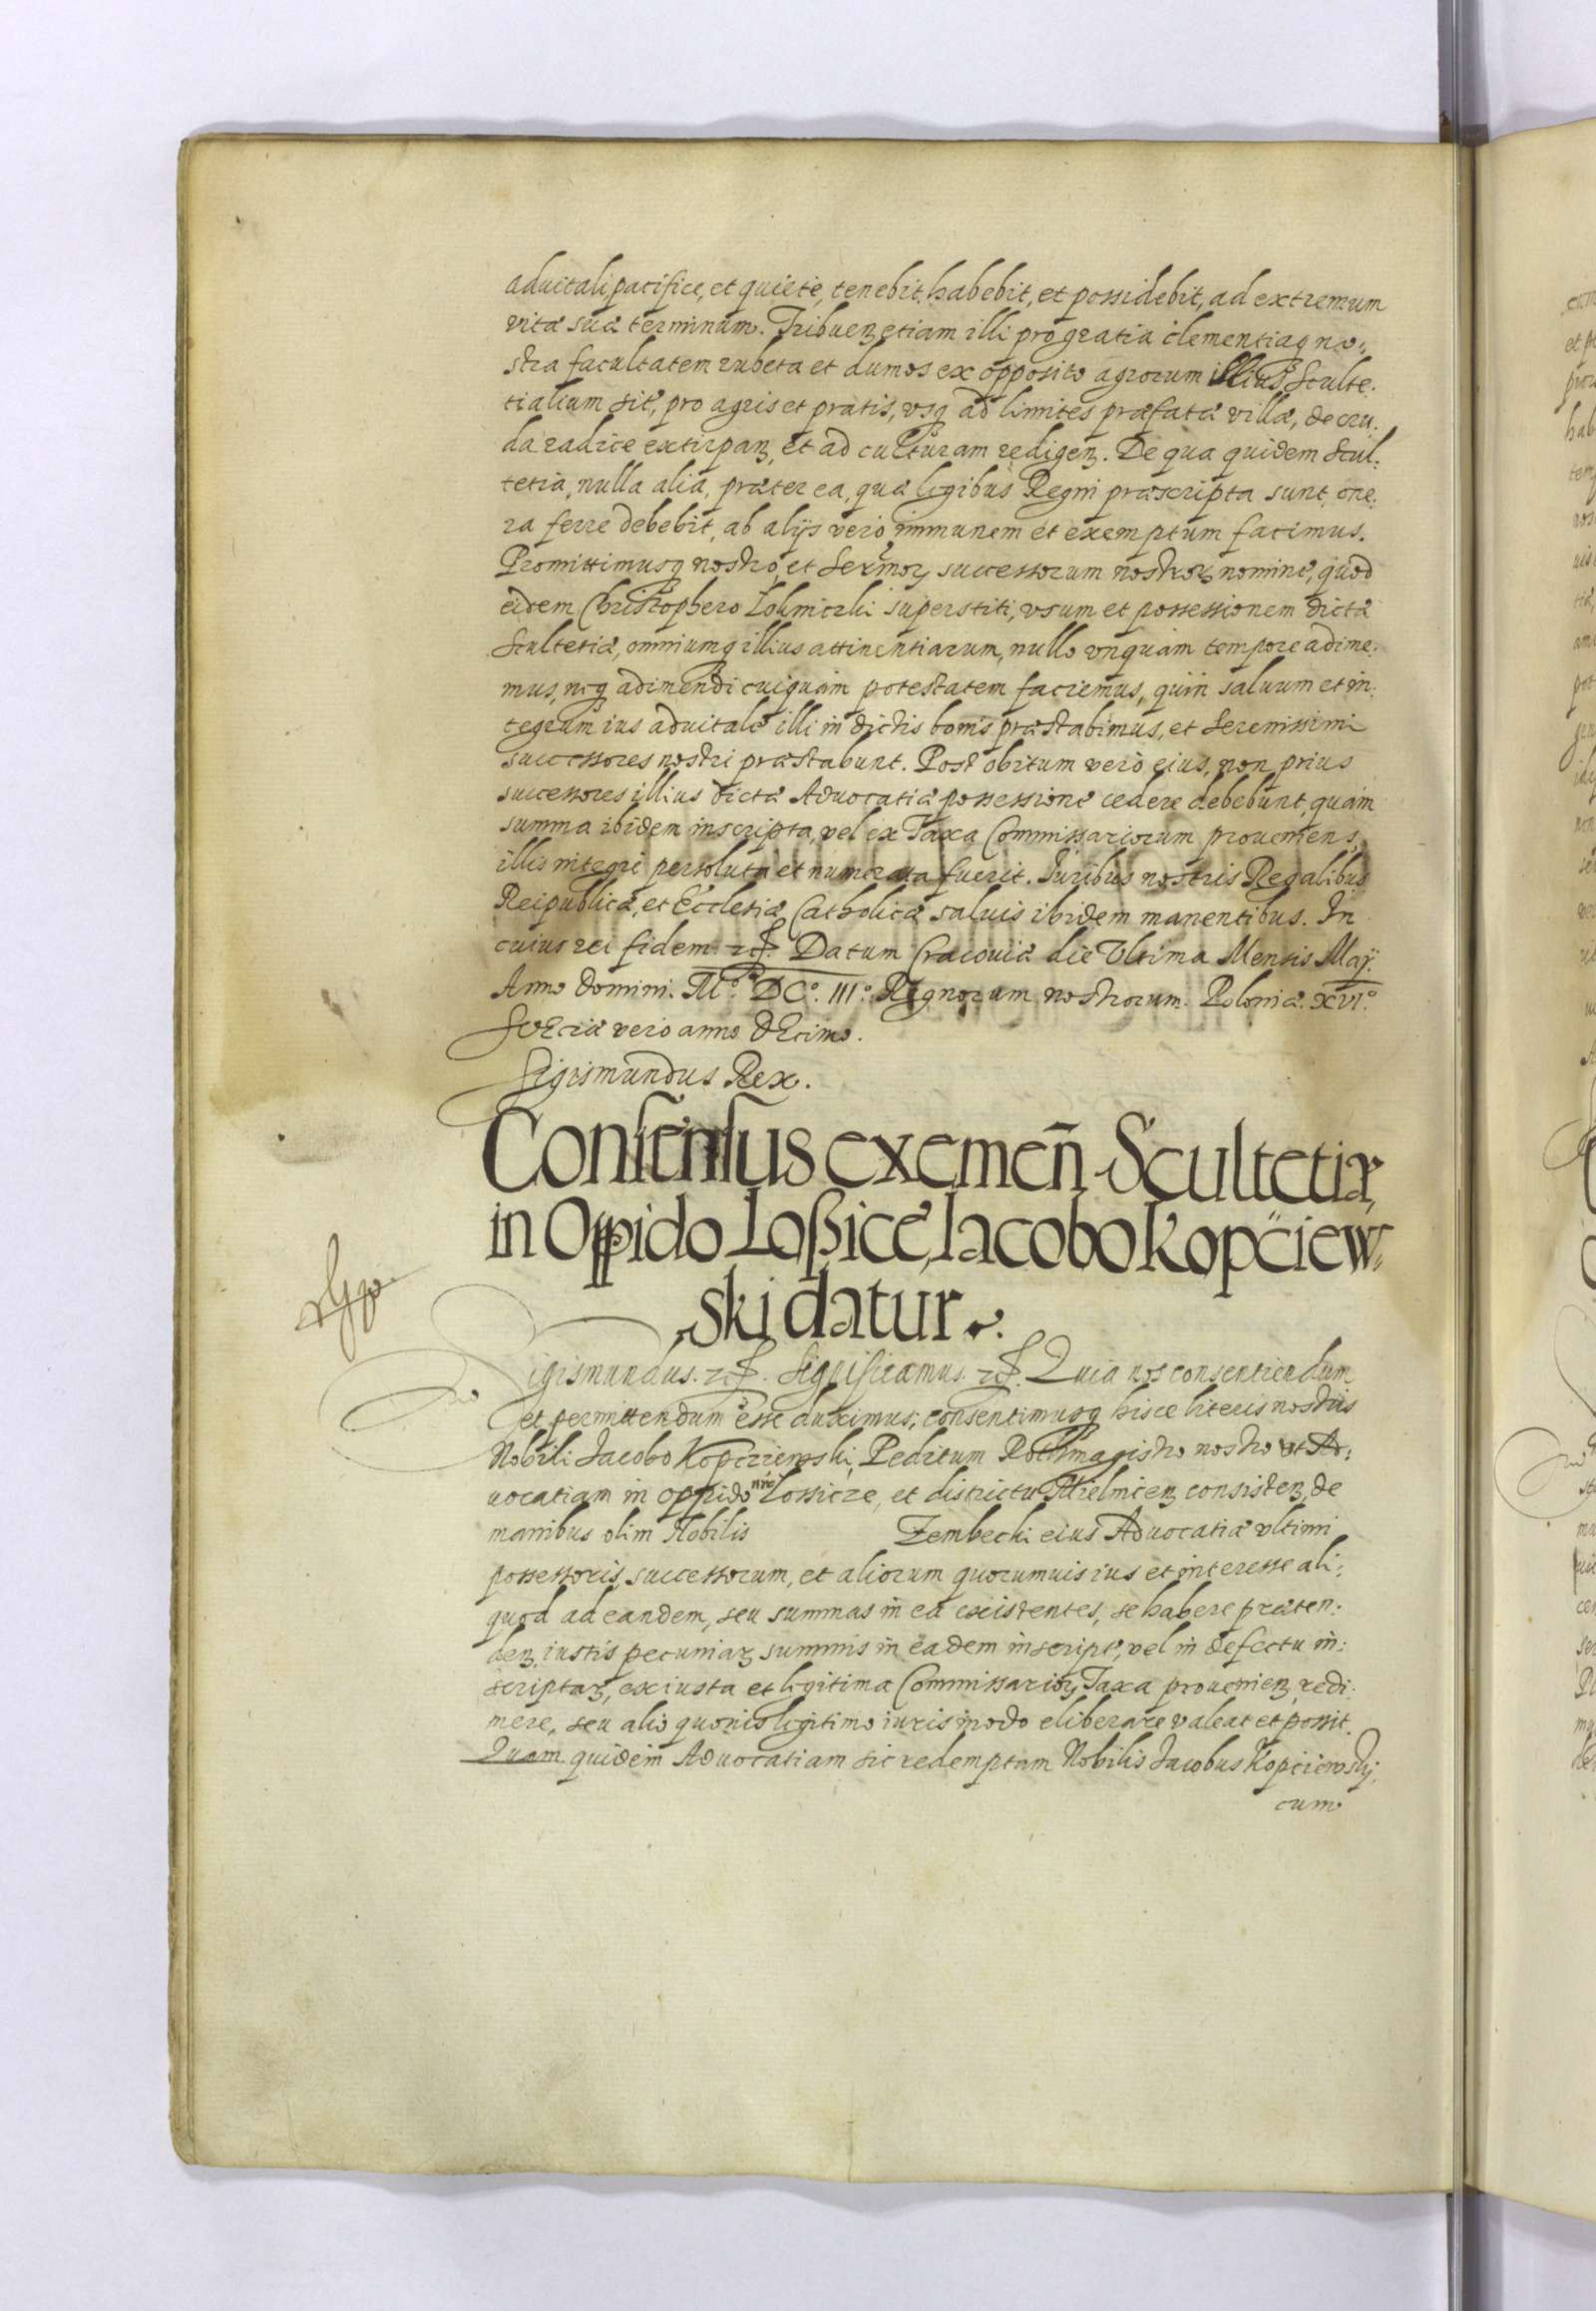 aduitali pacifice, et quiete, tenebit, habebit, et possidebit, ad extremum
vitæ suæ terminum. Tribuenȝ etiam illi pro gratia clementiaq no:
stra facultatem rubeta et dumos ex opposito agrorum illius Sculte:
tialium sit, pro agris et pratis, vsq ad limites præfatæ villæ, de cru:
da radice extirpanȝ, et ad culturam redigenȝ. De qua quidem Scul:
tetia, nulla alia, præter ea, quæ legibus Regni præscripta sunt, one:
ra ferre debebit, ab alijs vero immunem et exemptum facimus.
Promittimusq nostro, et Serm̃oꝝ successorum nostroꝝ nomine, quod
eidem Christophero superstiti, vsum et possessionem dictæ
Scultetiæ, omniumq illius attinentiarum, nullo vnquam tempore adime:
mus, neq adimendi cuiquam potestatem faciemus, quin saluum et in:
tegrum ius aduitale illi in dictis bonis præstabimus, et Serenissimi
successores nostri præstabunt. Post obitum vero eius, non prius
successores illius dictæ Aduocatiæ possessione cedere debebunt, quam
summa ibidem inscripta, vel ex Taxa Commissariorum proueniens,
illis integre persoluta et numerata fuerit. Iuribus nostris Regalibus
Reipublicæ, et Ecclesiæ Catholicæ saluis ibidem manentibus. In
cuius rei fidem etc. Datum Cracouiæ die Vltima Mensis Maij.
Anno Domini. Mº. DCº. IIIº. Regnorum nostrorum. Poloniæ. XVIº.
SVEciæ vero anno dEcimo.
Sigismundus Rex.
Consensus exemeñ Scultetiæ,
in Oppido Loßice, Iacobo Kopciew:
ski datur.
Sigismundus. etc. Significamus. etc. Quia nos consentiendum
et permittendum esse duximus; consentimusq hisce literis nostris
Nobili Iacobo Kopcziewski, Peditum Rothmagistro nostro vt Ad:
uocatiam in oppido nr̃o Lossicze, et districtu Mielnicenȝ consistenȝ, de
manibus olim Nobilis Zembecki eius Aduocatiæ vltimi
possessoris, successorum, et aliorum quorumuis ius et interesse ali:
quod ad eandem, seu summas in ea existentes, se habere præten:
denȝ, iustis pecuniaꝝ summis in eadem inscript, vel in defectu in:
scriptaꝝ, ex iusta et legitima Commissarioꝝ Taxa prouenienȝ, redi:
mere, seu alio quouis legitimo iuris modo eliberare valeat et possit.
Quam quidem Aduocatiam sic redemptam Nobilis Iacobus Kopciewskij,
cum